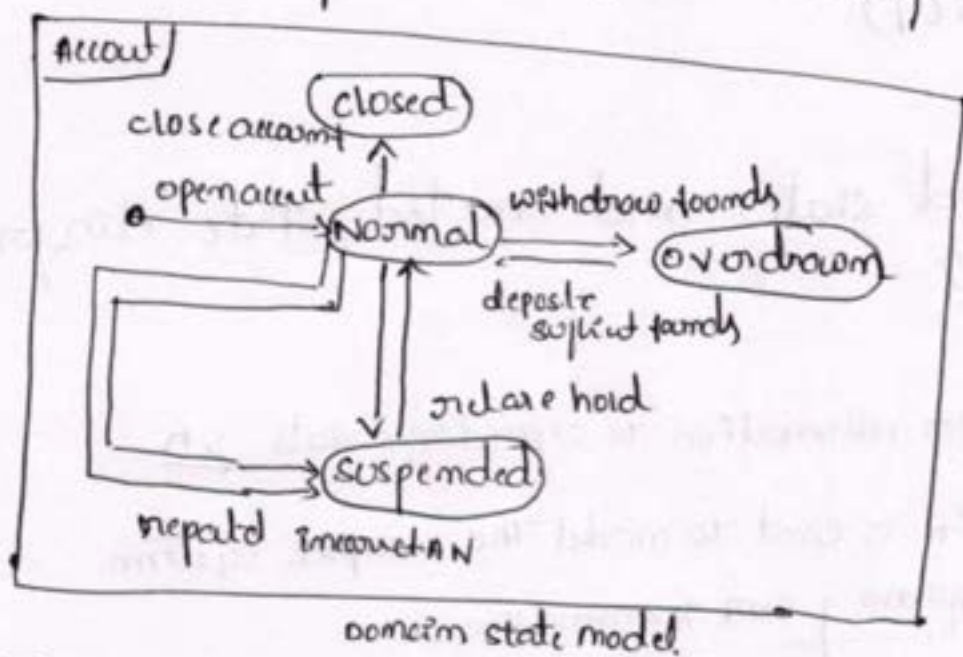 Accout
closed
close accoumt
open accut
Normal
withdraw foomds
overdrawn
deposte
sufict foumds
relare hold
suspended
repatd incorrect AN
Domcim state model